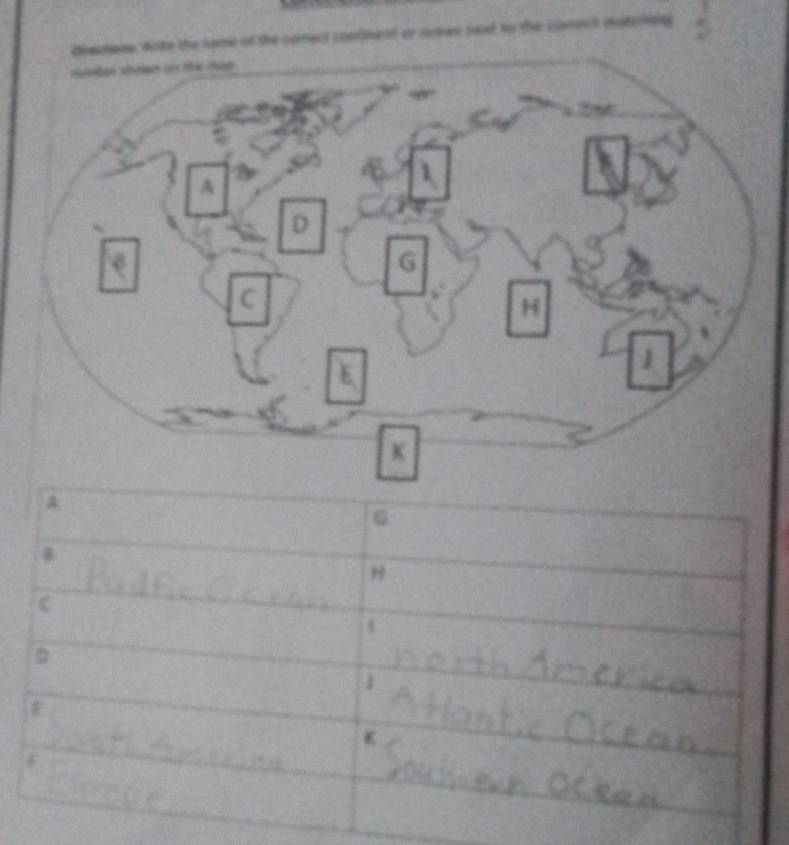 Directions: Write the name of the correct continent or ocean next to the correct matching
number shown on the map
A
D
G
C
H
E
J
K
A
G
B Pacific Ocean
H
C
I north America
D
J Atlantic Ocean
E South America
K Southern Ocean
F Europe